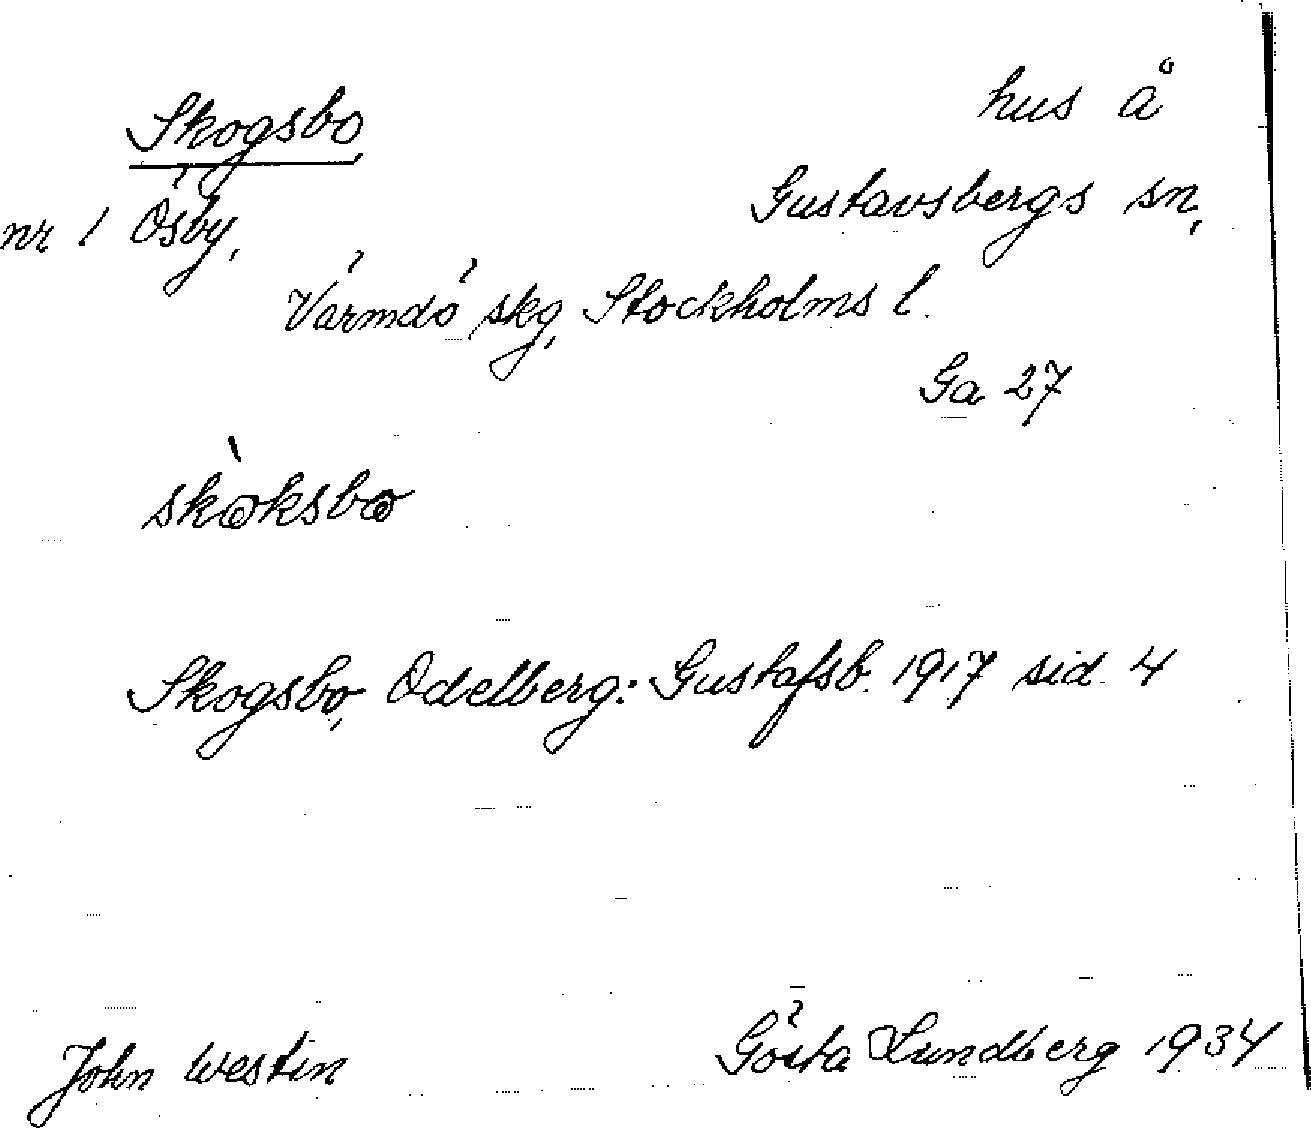 Skogsbo, hus å
nr 1 Ösby, Gustavsbergs sn,
Värmdö skg, Stockholms l.
Ga 27
skòksbo
Skogsbo, Odelberg: Gustafsb. 1917 sid. 4
John Westin Gösta Lundberg 1934